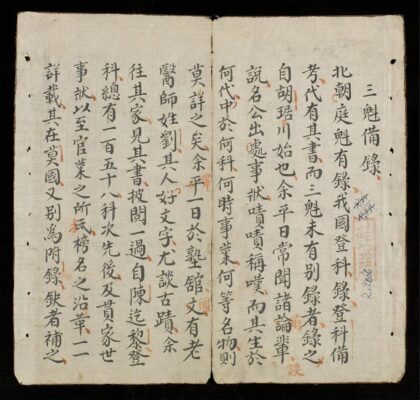 三魁備錄
北朝庭魁有錄我國登科錄登科備
考代有其書而三魁未有别錄者錄之
自胡琣川始也余平日常聞諸論輩
說名公出處事狀嘖嘖稱嘆而其生於
何代中於何科何時事業何等名物則
莫詳之矣余平一日於塾舘文有老
醫師姓劉其人好文字尤談古蹟余
往其家見其書披閱一過自陳迄黎登
科總有一百五十八科次先後及貫家世
事狀以至官業之所榜名之沿革一一
詳載其在莫國又别為附錄缺者補之